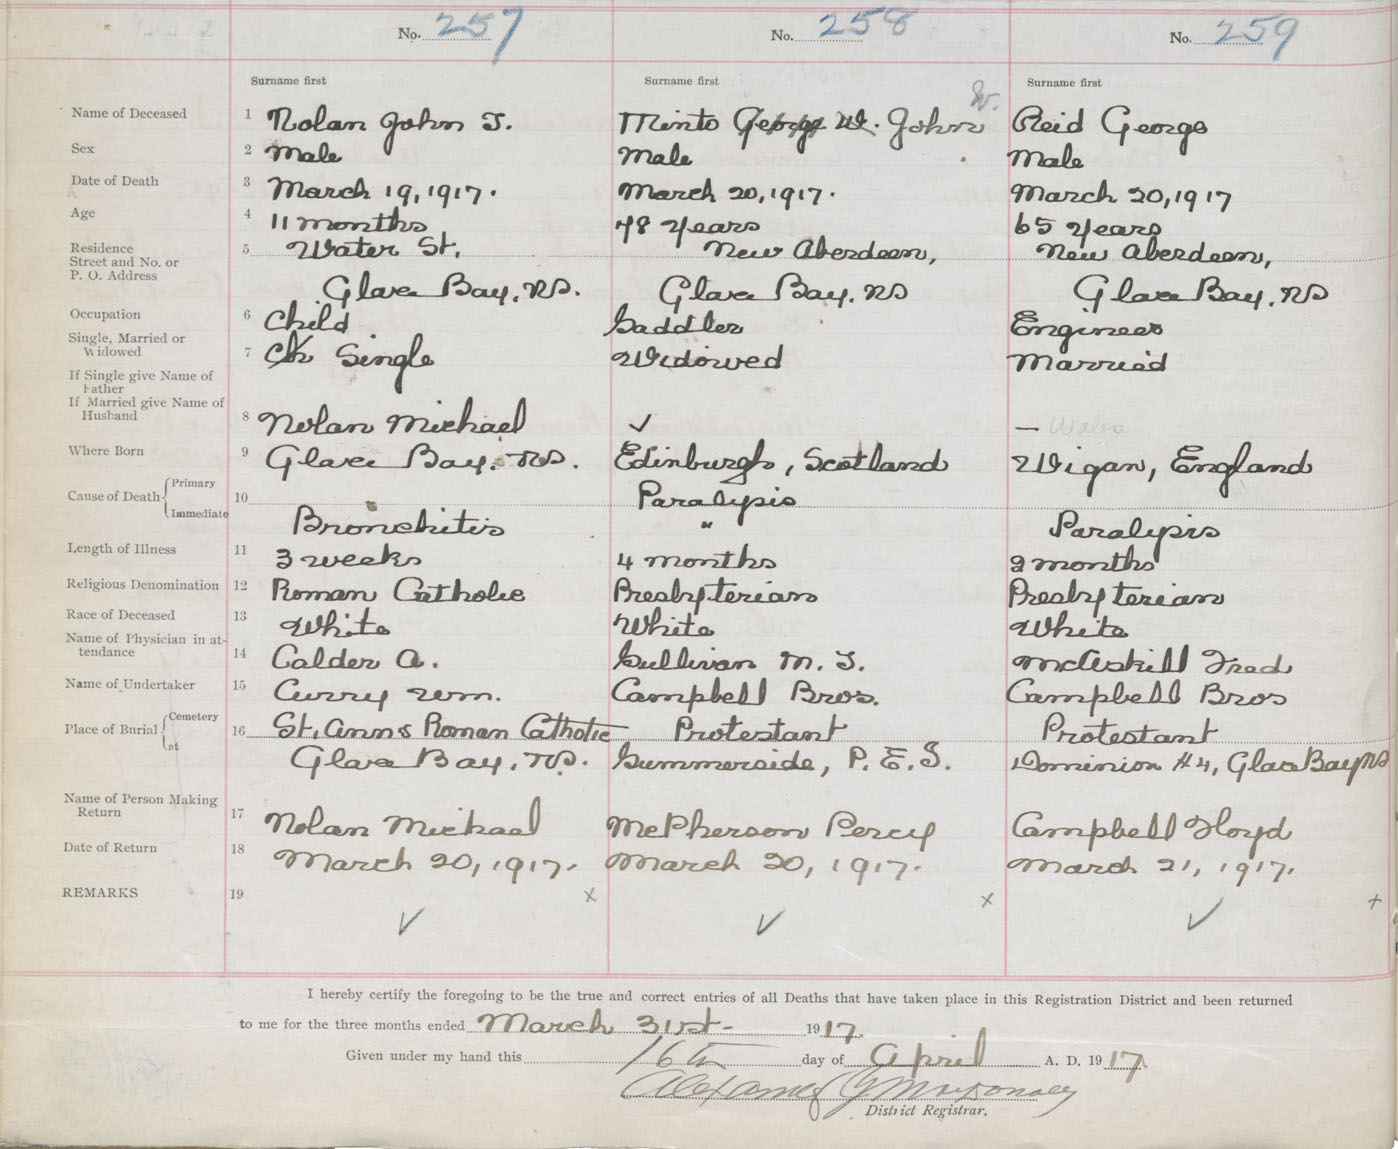 No. 257 No. 258 No. 259
Surname first Surname first Surname first
Name of Deceased 1 Nolan John T. Minto George W. John W. Reid George
Sex 2 Male Male Male
Date of Death 3 March 19, 1917. March 20, 1917. March 20, 1917
Age 4 11 months 48 years 65 years
Residence 5 Water St. New Aberdeen, New Aberdeen,
Street and No. or
P. O. Address Glace Bay, NS. Glace Bay, NS Glace Bay, NS
Occupation 6 Child Saddler Engineer
Single, Married or
Widowed 7 Ch Single Widowed Married
If Single give Name of
Father
If Married give Name of
Husband 8 Nolan Michael ✓ — Wales
Where Born 9 Glace Bay, NS. Edinburgh, Scotland Wigan, England
Cause of Death { Primary 10 Paralysis
Immediate Bronchitis " Paralysis
Length of Illness 11 3 weeks 4 months 2 months
Religious Denomination 12 Roman Catholic Presbyterian Presbyterian
Race of Deceased 13 White White White
Name of Physician in at-
tendance 14 Calder A. Sullivan M. T. McAskill Fred
Name of Undertaker 15 Curry Wm. Campbell Bros. Campbell Bros
Place of Burial { Cemetery 16 St. Anns Roman Catholic Protestant Protestant
at Glace Bay, NS. Summerside, P. E. I. Dominion #4, Glace Bay NS
Name of Person Making
Return 17 Nolan Michael McPherson Percy Campbell Floyd
Date of Return 18 March 20, 1917. March 20, 1917. March 21, 1917.
REMARKS 19 x x +
✓ ✓ ✓
I hereby certify the foregoing to be the true and correct entries of all Deaths that have taken place in this Registration District and been returned
to me for the three months ended March 31st- 1917.
Given under my hand this 16th day of April A. D. 1917.
Alexander G MacDonald
District Registrar.